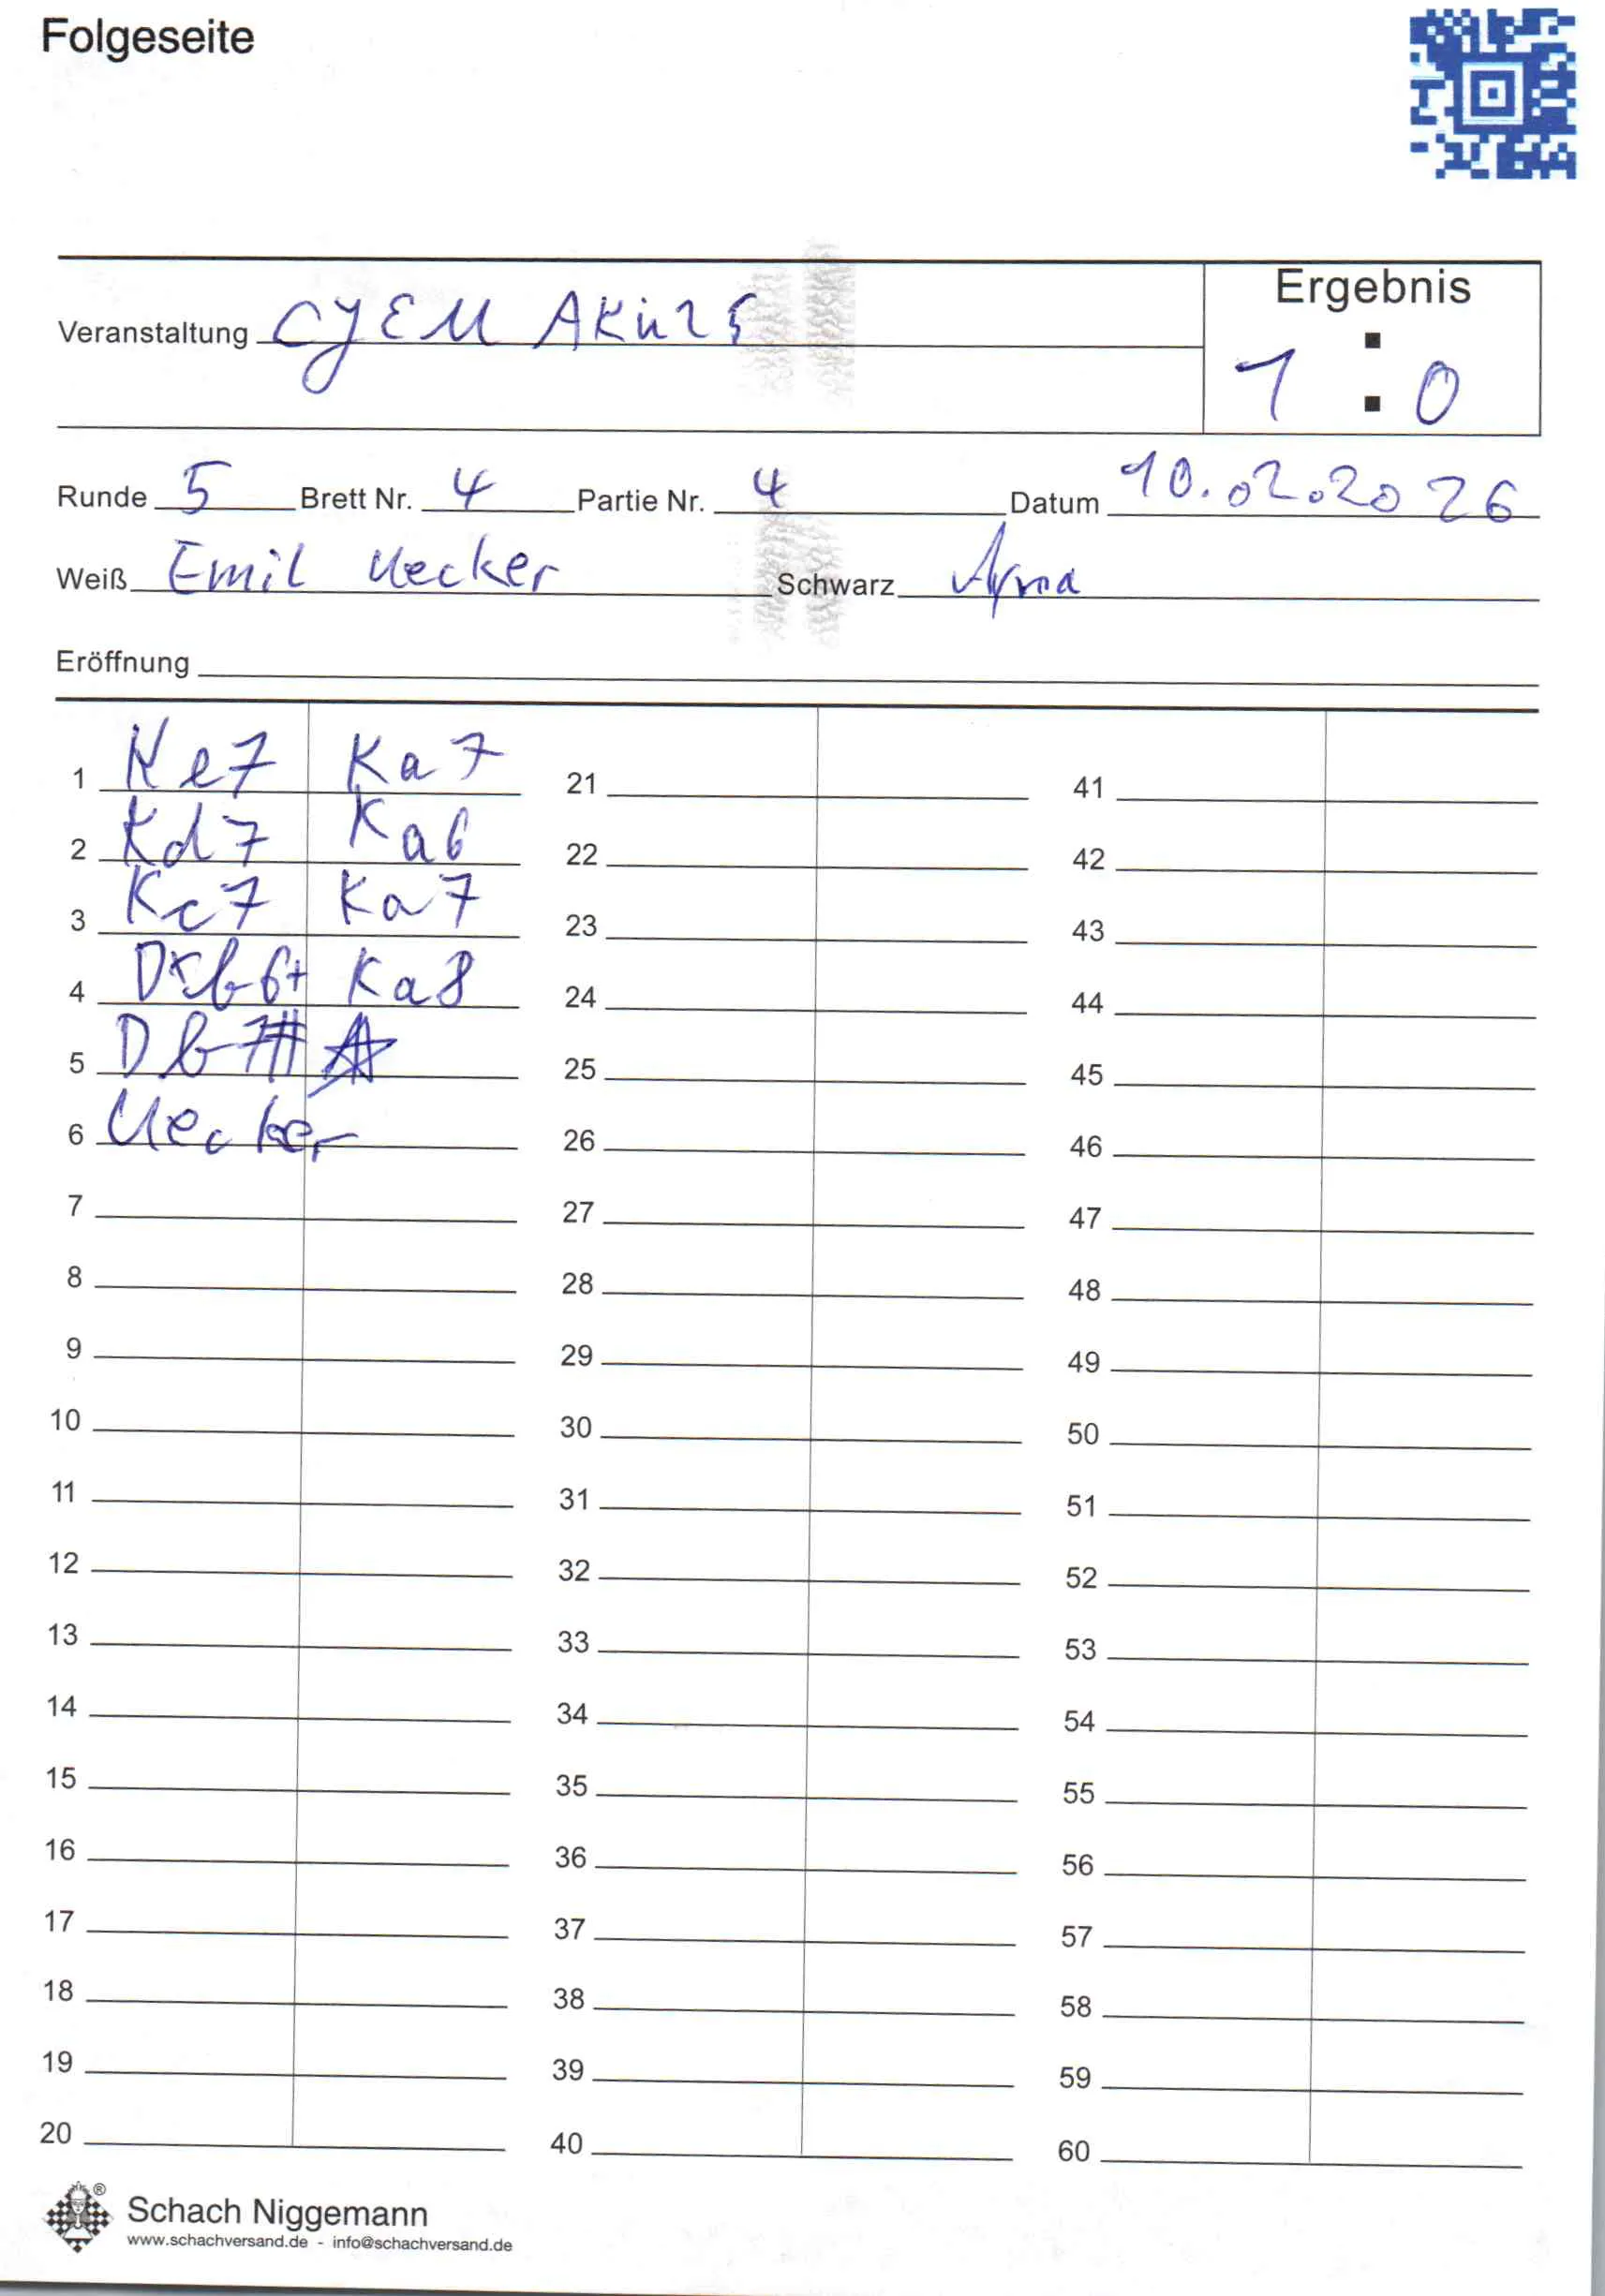 Folgeseite
Ergebnis
Veranstaltung CJEM AKü25
1 : 0
Runde 5 Brett Nr. 4 Partie Nr. 4 Datum 10.02.2026
Weiß Emil Uecker Schwarz
Eröffnung
1 Ke7 Ka7 21 41
2 Kd7 Ka6 22 42
3 Kc7 Ka7 23 43
4 Dxb6+ Ka8 24 44
5 Db7# 25 45
6 Uecker 26 46
7 27 47
8 28 48
9 29 49
10 30 50
11 31 51
12 32 52
13 33 53
14 34 54
15 35 55
16 36 56
17 37 57
18 38 58
19 39 59
20 40 60
Schach Niggemann
www.schachversand.de - info@schachversand.de